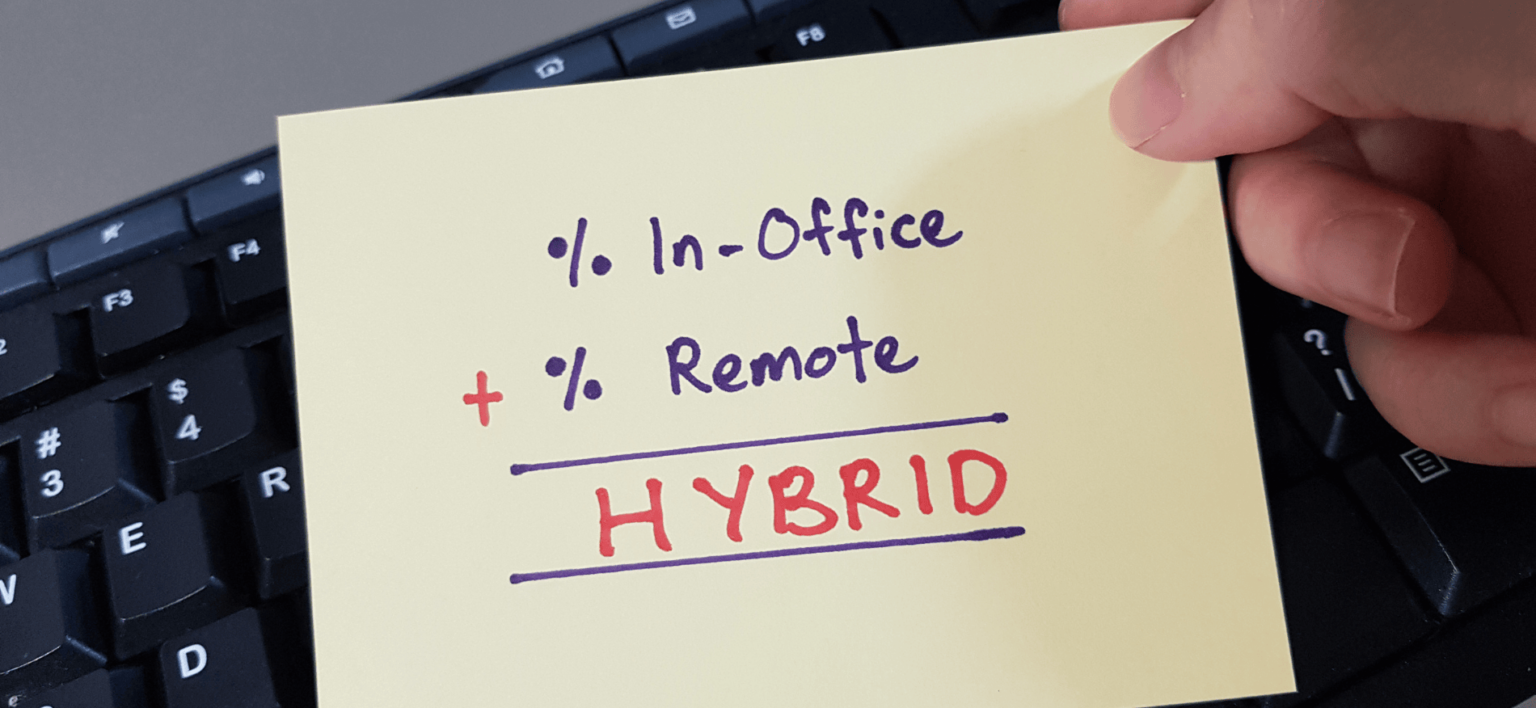 F8
F4
F3
2
% In-Office
+ % Remote
HYBRID
$
4
#
3
?
R
E
W
D